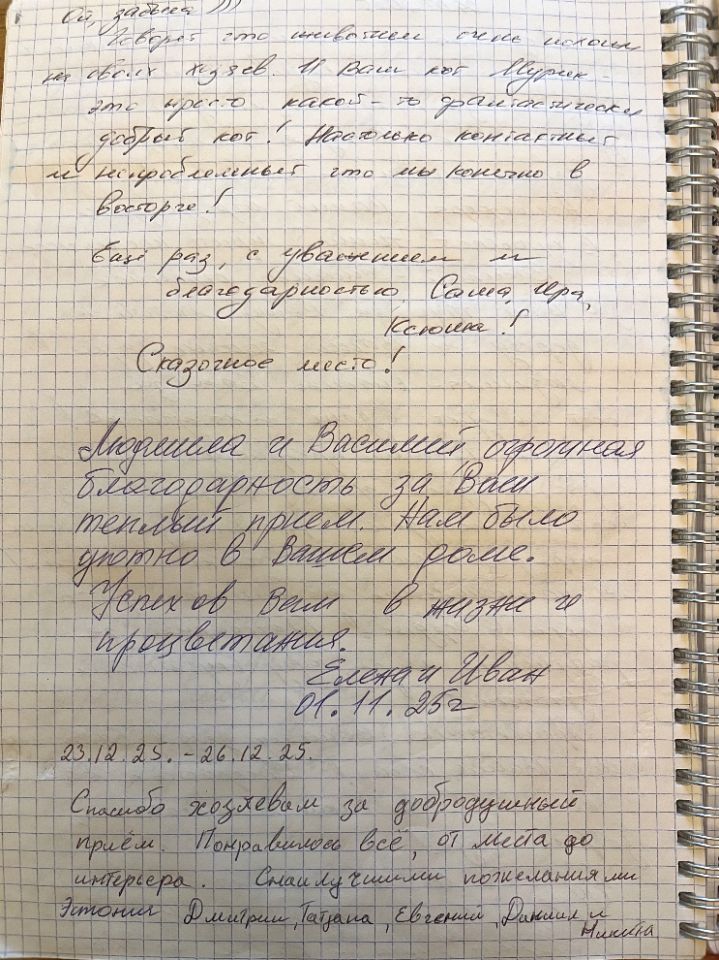 Ой, забыла )))
Говорят что животные очень похожи
на своих хозяев. И Ваш кот Мурик -
это просто какой-то фантастически
добрый кот! Настолько контактный
и непроблемный что мы конечно в
восторге!
Ещё раз, с уважением и
благодарностью Саша, Ира,
Ксюша!
Сказочное место!
Людмила и Василий, огромная
благодарность за Ваш
теплый прием. Нам было
уютно в Вашем доме.
Успехов Вам в жизни и
процветания.
Елена и Иван
01.11.25г
23.12.25. - 26.12.25.
Спасибо хозяевам за добродушный
приём. Понравилось всё, от места до
интерьера. С наилучшими пожеланиями
Эстонии Дмитрий, Татьяна, Евгений, Даниил и
Никита